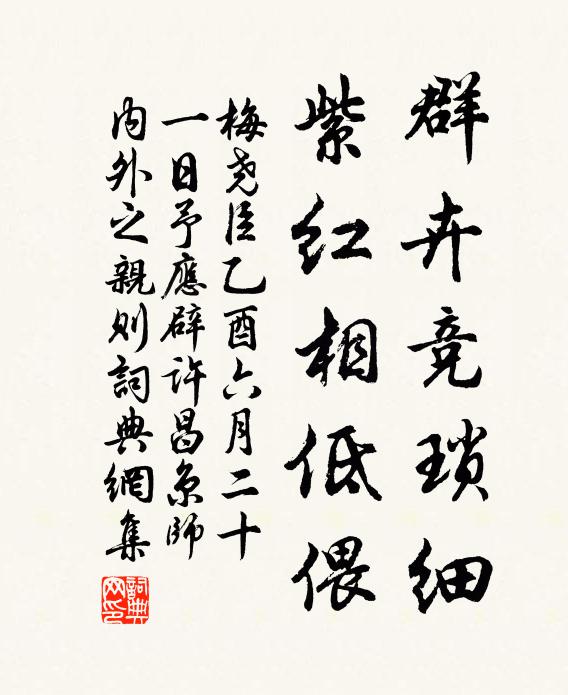 群卉竞琐细
紫红相低偎
梅尧臣乙酉六月二十
一日予應辟许昌京师
内外之親则詞典網集
詞典
网印